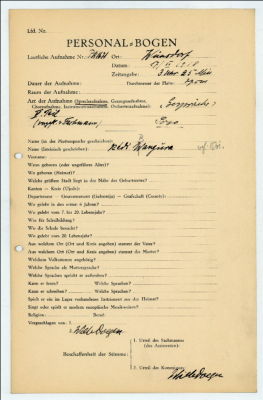 Lfd. Nr.
PERSONAL-BOGEN
Lautliche Aufnahme Nr.: Ort: Wünsdorf
Datum:
Zeitangabe: 3 Uhr 25 Min
Dauer der Aufnahme: Durchmesser der Platte:
Raum der Aufnahme:
Art der Aufnahme (Sprechaufnahme, Gesangsaufnahme,
Choraufnahme, Instrumentenaufnahme, Orchesteraufnahme): Gespräche
Name (in der Muttersprache geschrieben):
Name (lateinisch geschrieben):
Vorname:
Wann geboren (oder ungefähres Alter)?
Wo geboren (Heimat)?
Welche größere Stadt liegt in der Nähe des Geburtsortes?
Kanton — Kreis (Ujedz):
Department — Gouvernement (Gubernija) — Grafschaft (County):
Wo gelebt in den ersten 6 Jahren?
Wo gelebt vom 7. bis 20. Lebensjahr?
Was für Schulbildung?
Wo die Schule besucht?
Wo gelebt vom 20. Lebensjahr?
Aus welchem Ort (Ort und Kreis angeben) stammt der Vater?
Aus welchem Ort (Ort und Kreis angeben) stammt die Mutter?
Welchem Volksstamm angehörig?
Welche Sprache als Muttersprache?
Welche Sprachen spricht er außerdem?
Kann er lesen? Welche Sprachen?
Kann er schreiben? Welche Sprachen?
Spielt er ein im Lager vorhandenes Instrument aus der Heimat?
Singt oder spielt er moderne europäische Musikweisen?
Religion: Beruf:
Vorgeschlagen von: 1.
2.
Beschaffenheit der Stimme:
1. Urteil des Fachmannes
(des Assistenten):
2. Urteil des Kommissars:
Wilh. Doegen